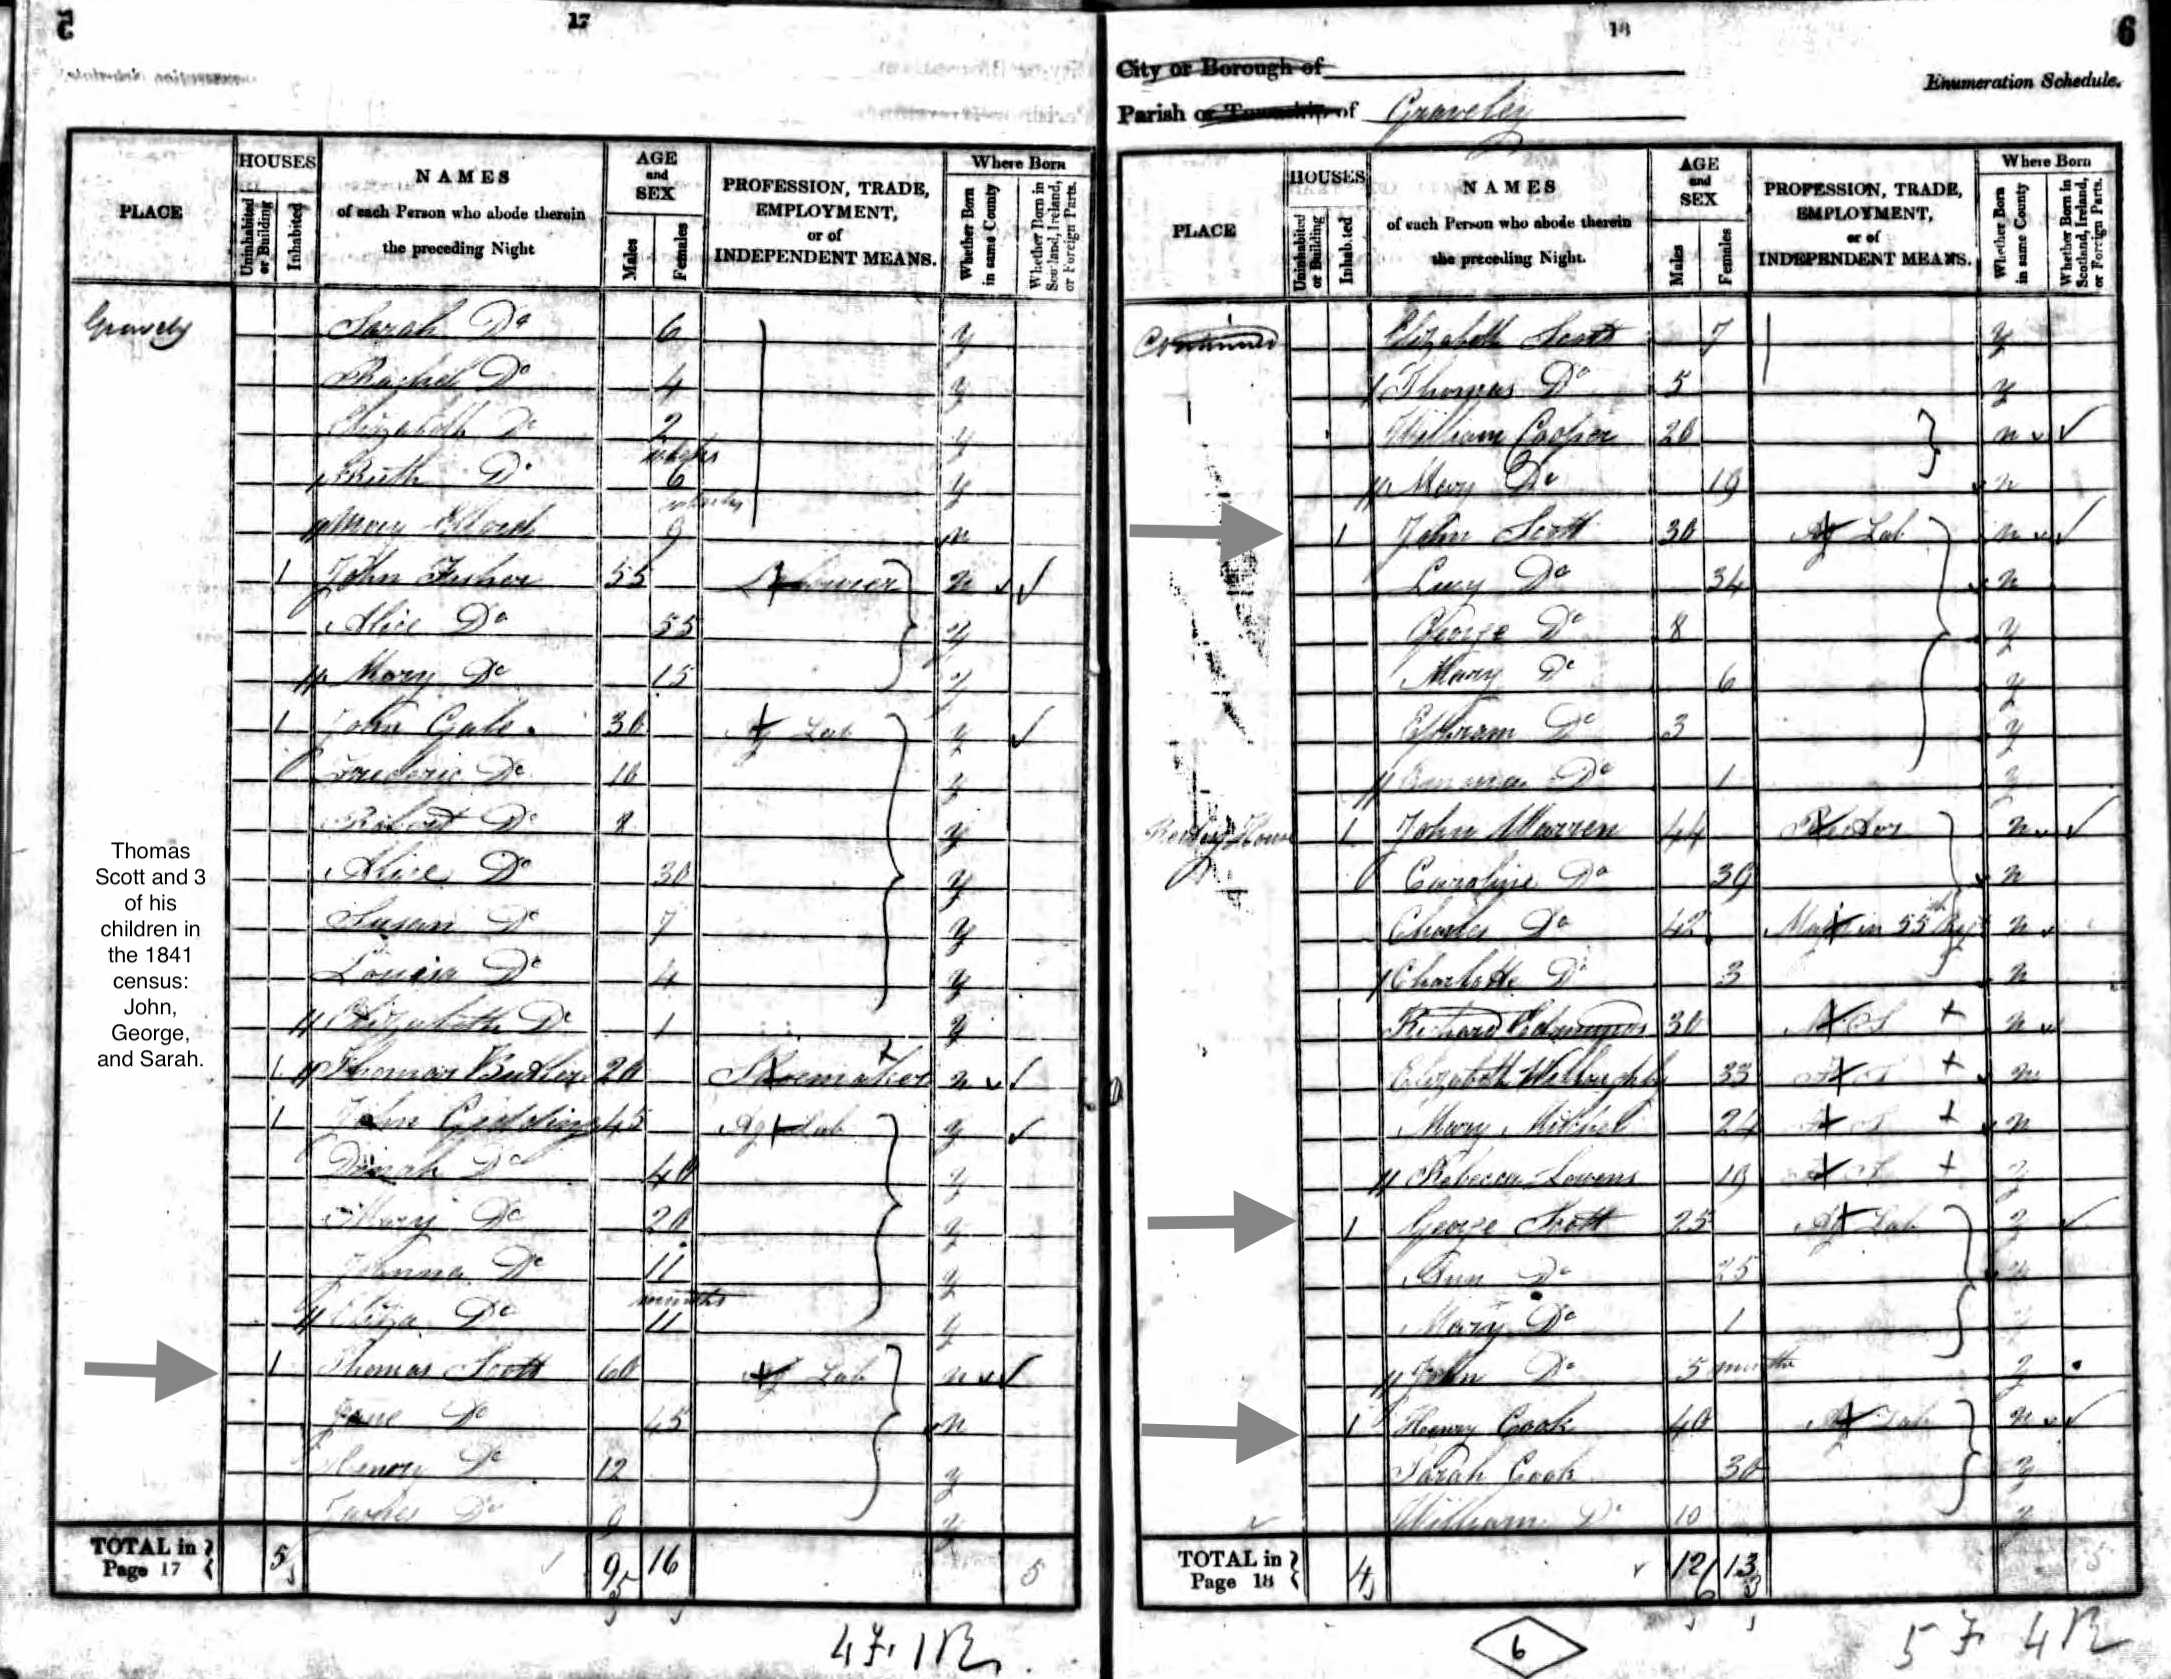 5
17
PLACE
HOUSES
Uninhabited or Building
Inhabited
NAMES
of each Person who abode therein
the preceding Night
AGE
and
SEX
Males
Females
PROFESSION, TRADE,
EMPLOYMENT,
or of
INDEPENDENT MEANS.
Where Born
Whether Born in same County
Whether Born in Scotland, Ireland, or Foreign Parts.
Gravely
Sarah Do 6 y
Rachel Do 4 y
Elizabeth Do 2 y
Ruth Do 6 y
Mary 9 n
1 John Fisher 55 Labourer n
Alice Do 55 y
Mary Do 15 y
1 John Gale 30 Ag Lab y
Frederic Do 10 y
Robert Do 8 y
Alice Do 30 y
Susan Do 7 y
Louisa Do 4 y
Elizabeth Do 1 y
1 Thomas Butler 20 Shoemaker n
1 John Giddings 45 Ag Lab y
Dinah Do 40 y
Mary Do 20 y
Johanna Do 11 y
months
Eliza Do 11 y
1 Thomas Scott 60 Ag Lab n
Jane Do 45 n
Henry Do 12 y
James Do 9 y
Thomas
Scott and 3
of his
children in
the 1841
census:
John,
George,
and Sarah.
TOTAL in
Page 17
5 9 16 5
18
6
City or Borough of
Parish or Township of Graveley
Enumeration Schedule.
PLACE
HOUSES
Uninhabited or Building
Inhabited
NAMES
of each Person who abode therein
the preceding Night.
AGE
and
SEX
Males
Females
PROFESSION, TRADE,
EMPLOYMENT,
or of
INDEPENDENT MEANS.
Where Born
Whether Born in same County
Whether Born in Scotland, Ireland, or Foreign Parts.
Continued Elizabeth Scott 7 y
Thomas Do 5 y
William Cooper 20 n
Mary Do 19 n
1 John Scott 30 Ag Lab n
Lucy Do 34 n
George Do 8 y
Mary Do 6 y
Ephram Do 3 y
Do 1 y
1 John Warren 44 Rector n
Caroline Do 39 n
Charles Do 42 in 55 n
Charlotte Do 3 n
Richard 30 M S n
Elizabeth Willoughby 33 F S n
Mary Mitchel 24 F S n
Rebecca 19 F S y
1 George Scott 25 Ag Lab y
Ann Do 25 n
Mary Do 1 y
John Do 5 months y
1 Henry Cook 40 Ag Lab n
Sarah Cook 30 y
William Do 10 y
TOTAL in
Page 18
4 12 13 5
6